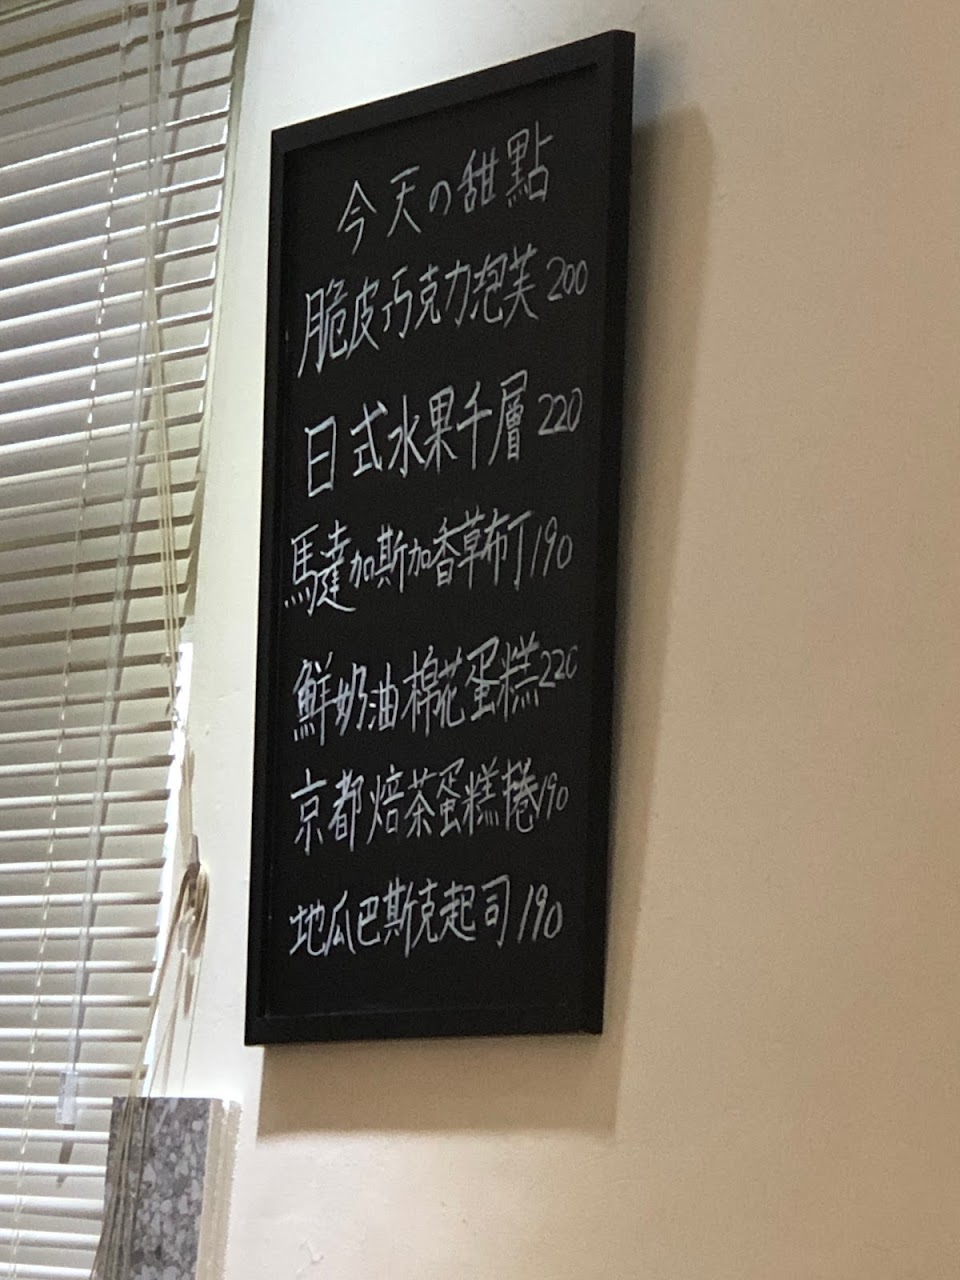 今天の甜點
脆皮巧克力泡芙 200
日式水果千層 220
馬達加斯加香草布丁 190
鮮奶油棉花蛋糕 220
京都焙茶蛋糕捲 190
地瓜巴斯克起司 190